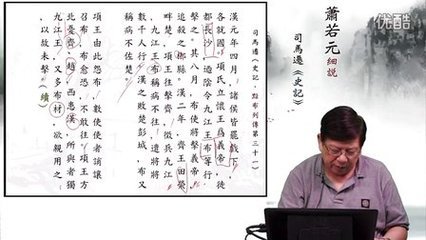 优酷
蕭若元細說
司馬遷《史記》
司馬遷《史記．黥布列傳第三十一》
漢元年四月，諸侯皆罷戲下，
各就國。項氏立懷王為義帝，徙
都長沙，迺陰令九江王布等行
擊之。其八月，布使將擊義帝，
追殺之郴縣。漢二年，齊王田榮
畔楚，項王往擊齊，徵兵九江，
九江王布稱病不往，遣將將
數千人行。漢之敗楚彭城，布又
稱病不佐楚。
項王由此怨布，數使使者誚讓
召布，布愈恐，不敢往。項王方
北憂齊、趙，西患漢，所與者獨
九江王，又多布材，欲親用之，
以故未擊。（續）